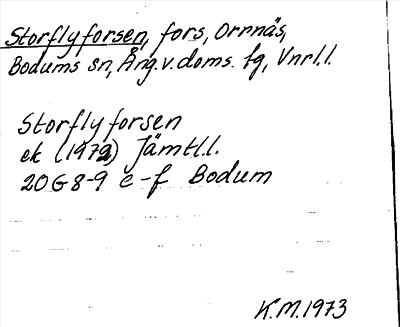 Storflyforsen, fors, Orrnäs,
Bodums sn, Ång.v.doms. fg, Vnrl.l.
Storflyforsen
ek (1972) Jämtl.l.
20G8-9 e-f Bodum
K.M.1973